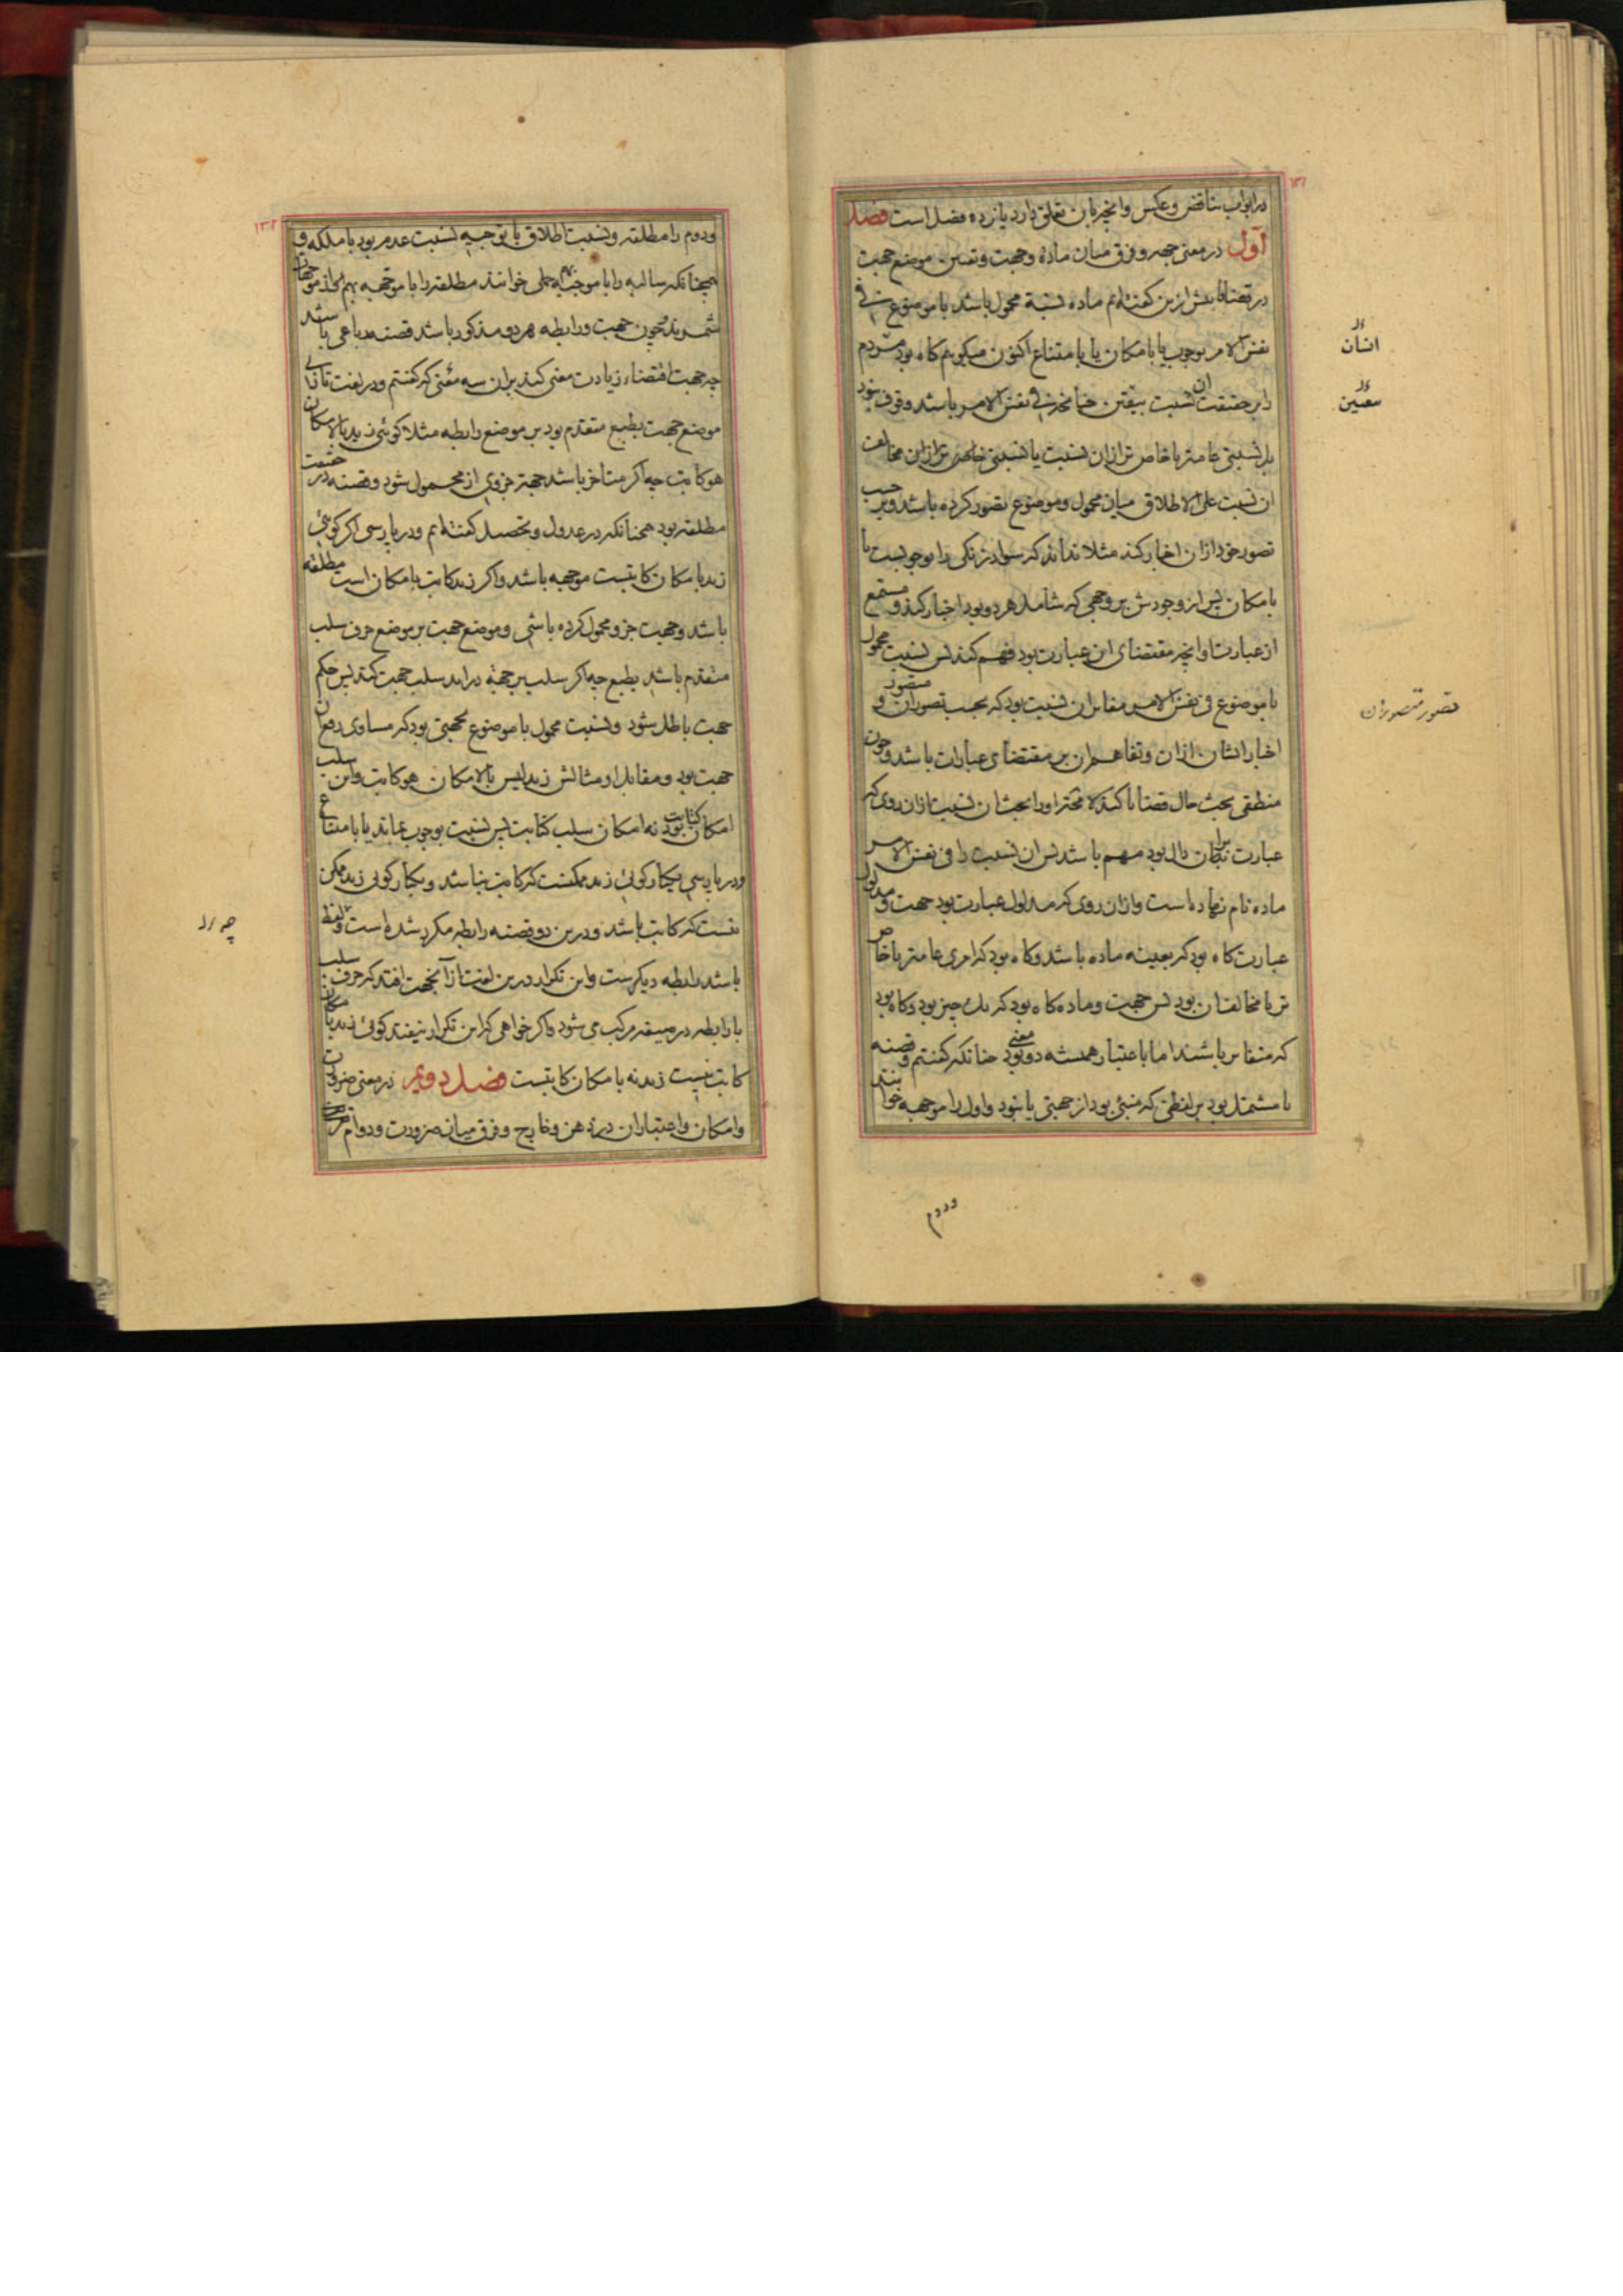 ۱۳۱
در ابواب تناقض و عکس و انچه بان تعلق دارد یازده فصل است فصل
اول در معنی جهه و فرق میان ماده و جهت و تعیین موضع جهت
در قضایا پیش ازین کفته‌ایم ماده نسبة محمول باشد با موضوع فی
نفس الامر بوجوب یا بامکان یا بامتناع اکنون میکویم کاه بود مردم
را بر حقیقت ان نسبت بیقین چنانچه در نفس الامر باشد وقوف نبود
بل نسبتی عامتر یا خاص تر ازان نسبت یا نسبتی مخالف
ان نسبت علی الاطلاق میان محمول و موضوع تصور کرده باشد و بر حسب
تصور خود ازان اخبار کند مثلا نداند که سواد زنکی را بوجوبست یا
بامکان پس از وجودش بر وجهی که شامل هر دو بود اخبار کند و مستمع
از عبارت او انچه مقتضای ان عبارت بود فهم کند پس نسبت محمول
با موضوع فی نفس الامر مغایر ان نسبت بود که بحسب تصور ان متصور و
اخبار ایشان ازان و تفاهم ان بر مقتضای عبارات باشد و چون
منطقی بحث حال قضایا کند لا محة او را بحث ان نسبت ازان روی که
عبارت بران دال بود مهم باشد پس ان نسبت را فی نفس الامر
ماده نام نهاده است و ازان روی که مدلول عبارت بود جهت و مدلول
عبارت کاه بود که بعینه ماده باشد و کاه بود که امری عامتر یا خاص
تر یا مخالف ان بود پس جهت و ماده کاه بود که یک چیز بود و کاه بود
که متغایر باشند اما باعتبار همیشه دو معنی بود چنانکه کفتیم و قضیه
یا مشتمل بود بر لفظی که منبئ بود از جهتی یا نبود و اول را موجهه خوانند
ودوم
انسان
معین
تصور متصوران
۱۳۲
و دوم را مطلقه و نسبت اطلاق با توجیه نسبت عدم بود با ملکه و
همچنانکه سالبه را با موجبه حملی خوانند مطلقه را با موجهه بهم از موجهات
شمرند و چون جهت و رابطه هر دو مذکور باشد قضیه رباعی باشد
چه جهت اقتضاء زیادت معنی کند بران سه معنی که کفتیم و در لغت تازی
موضع جهت بطبع متقدم بود بر موضع رابطه مثلا کوئی زید بالامکان
هو کاتب چه اکر متاخر باشد جهت جزوی از محمول شود و قضیه در حقیقت
مطلقه بود همچنانکه در عدول و تحصیل کفته‌ایم و در پارسی اکر کوئی
زید بامکان کاتبست موجهه باشد و اکر زید کاتب بامکان است مطلقه
باشد و جهت جزو محمول کرده باشی و موضع جهت بر موضع حرف سلب
متقدم باشد بطبع چه اکر سلب بر جهة دراید سلب جهت کند پس حکم
جهت باطل شود و نسبت محمول با موضوع بجهتی بود که مساوی رفع ان
جهت بود و مقابل او مثالش زید لیس بالامکان هو کاتب و این سلب
امکان کتابت بود نه امکان سلب کتابت پس نسبت بوجوب بماند یا بامتناع
و در پارسی یکبار کوئی زید ممکنست که کاتب نباشد و یکبار کوئی زید ممکن
نیست که کاتب باشد و درین دو قضیه رابطه مکرر شده است و لفظ
باشد رابطه دیکرست و این تکرار درین لغت ازانجهت افتد که حرف سلب
با رابطه در صیغه مرکب می شود و اکر خواهی که این تکرار نیفتد کوئی زید بامکان
کاتب نیست زید نه بامکان کاتبست فصل دویم در معنی ضرورت
و امکان و اعتبار ان در ذهن و خارج و فرق میان ضرورت و دوام